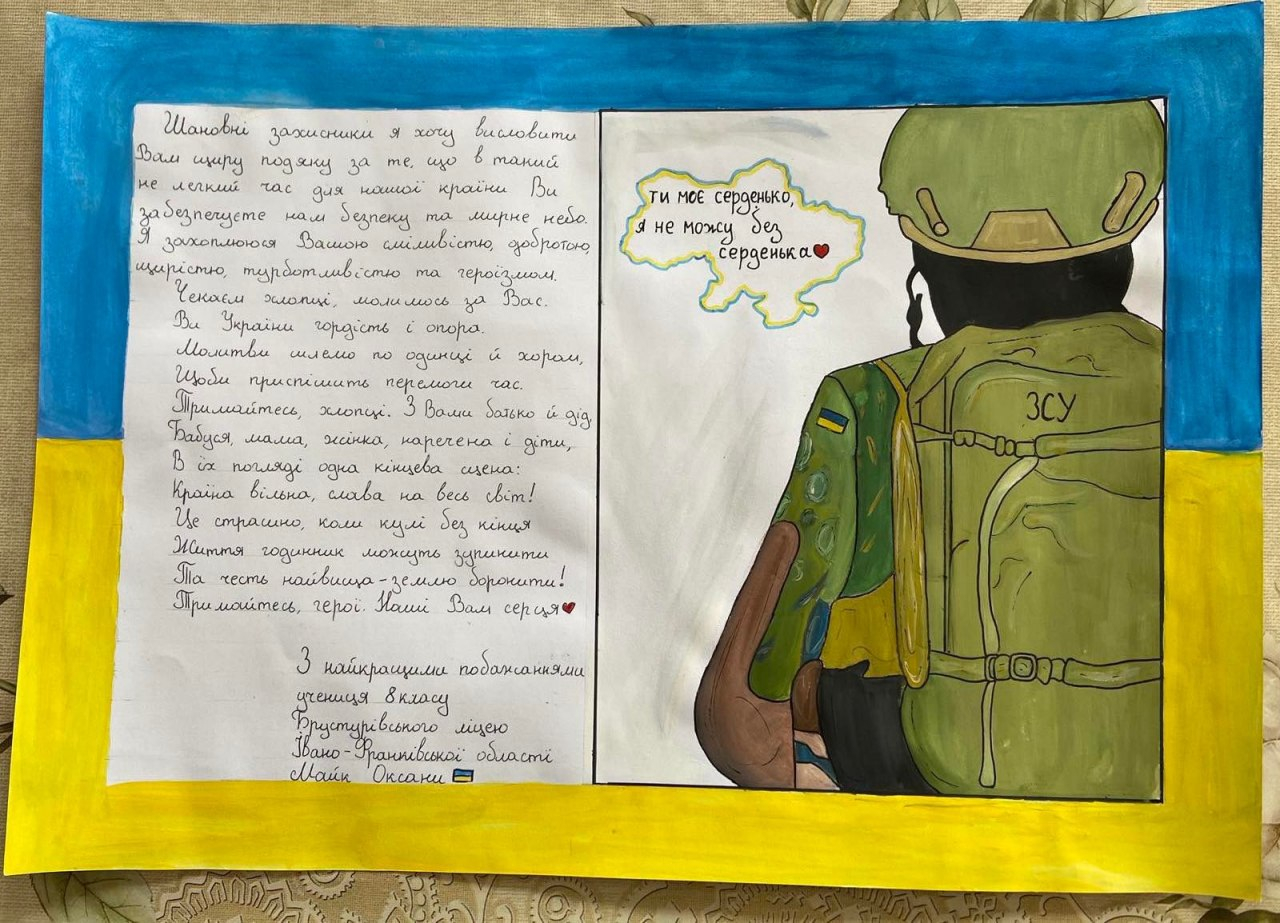 Шановні захисники я хочу висловити
Вам щиру подяку за те, що в такий
не легкий час для нашої країни Ви
забезпечуєте нам безпеку та мирне небо.
Я захоплююся Вашою сміливістю, добротою,
щирістю, турботливістю та героїзмом.
Чекаєм хлопці, молимось за Вас.
Ви України гордість і опора.
Молитви шлемо по одинці й хором,
Щоби приспішить перемоги час.
Тримайтесь, хлопці. З Вами батько й дід,
Бабуся, мама, жінка, наречена і діти,
В їх погляді одна кінцева сцена:
Країна вільна, слава на весь світ!
Це страшно, коли кулі без кінця
Життя годинник можуть зупинити
Та честь найвища - землю боронити!
Тримайтесь, герої. Наші Вам серця❤
З найкращими побажаннями
учениця 8 класу
Брустурівського ліцею
Івано-Франківської області
Майк Оксани
ти моє серденько,
я не можу без
серденька❤
ЗСУ